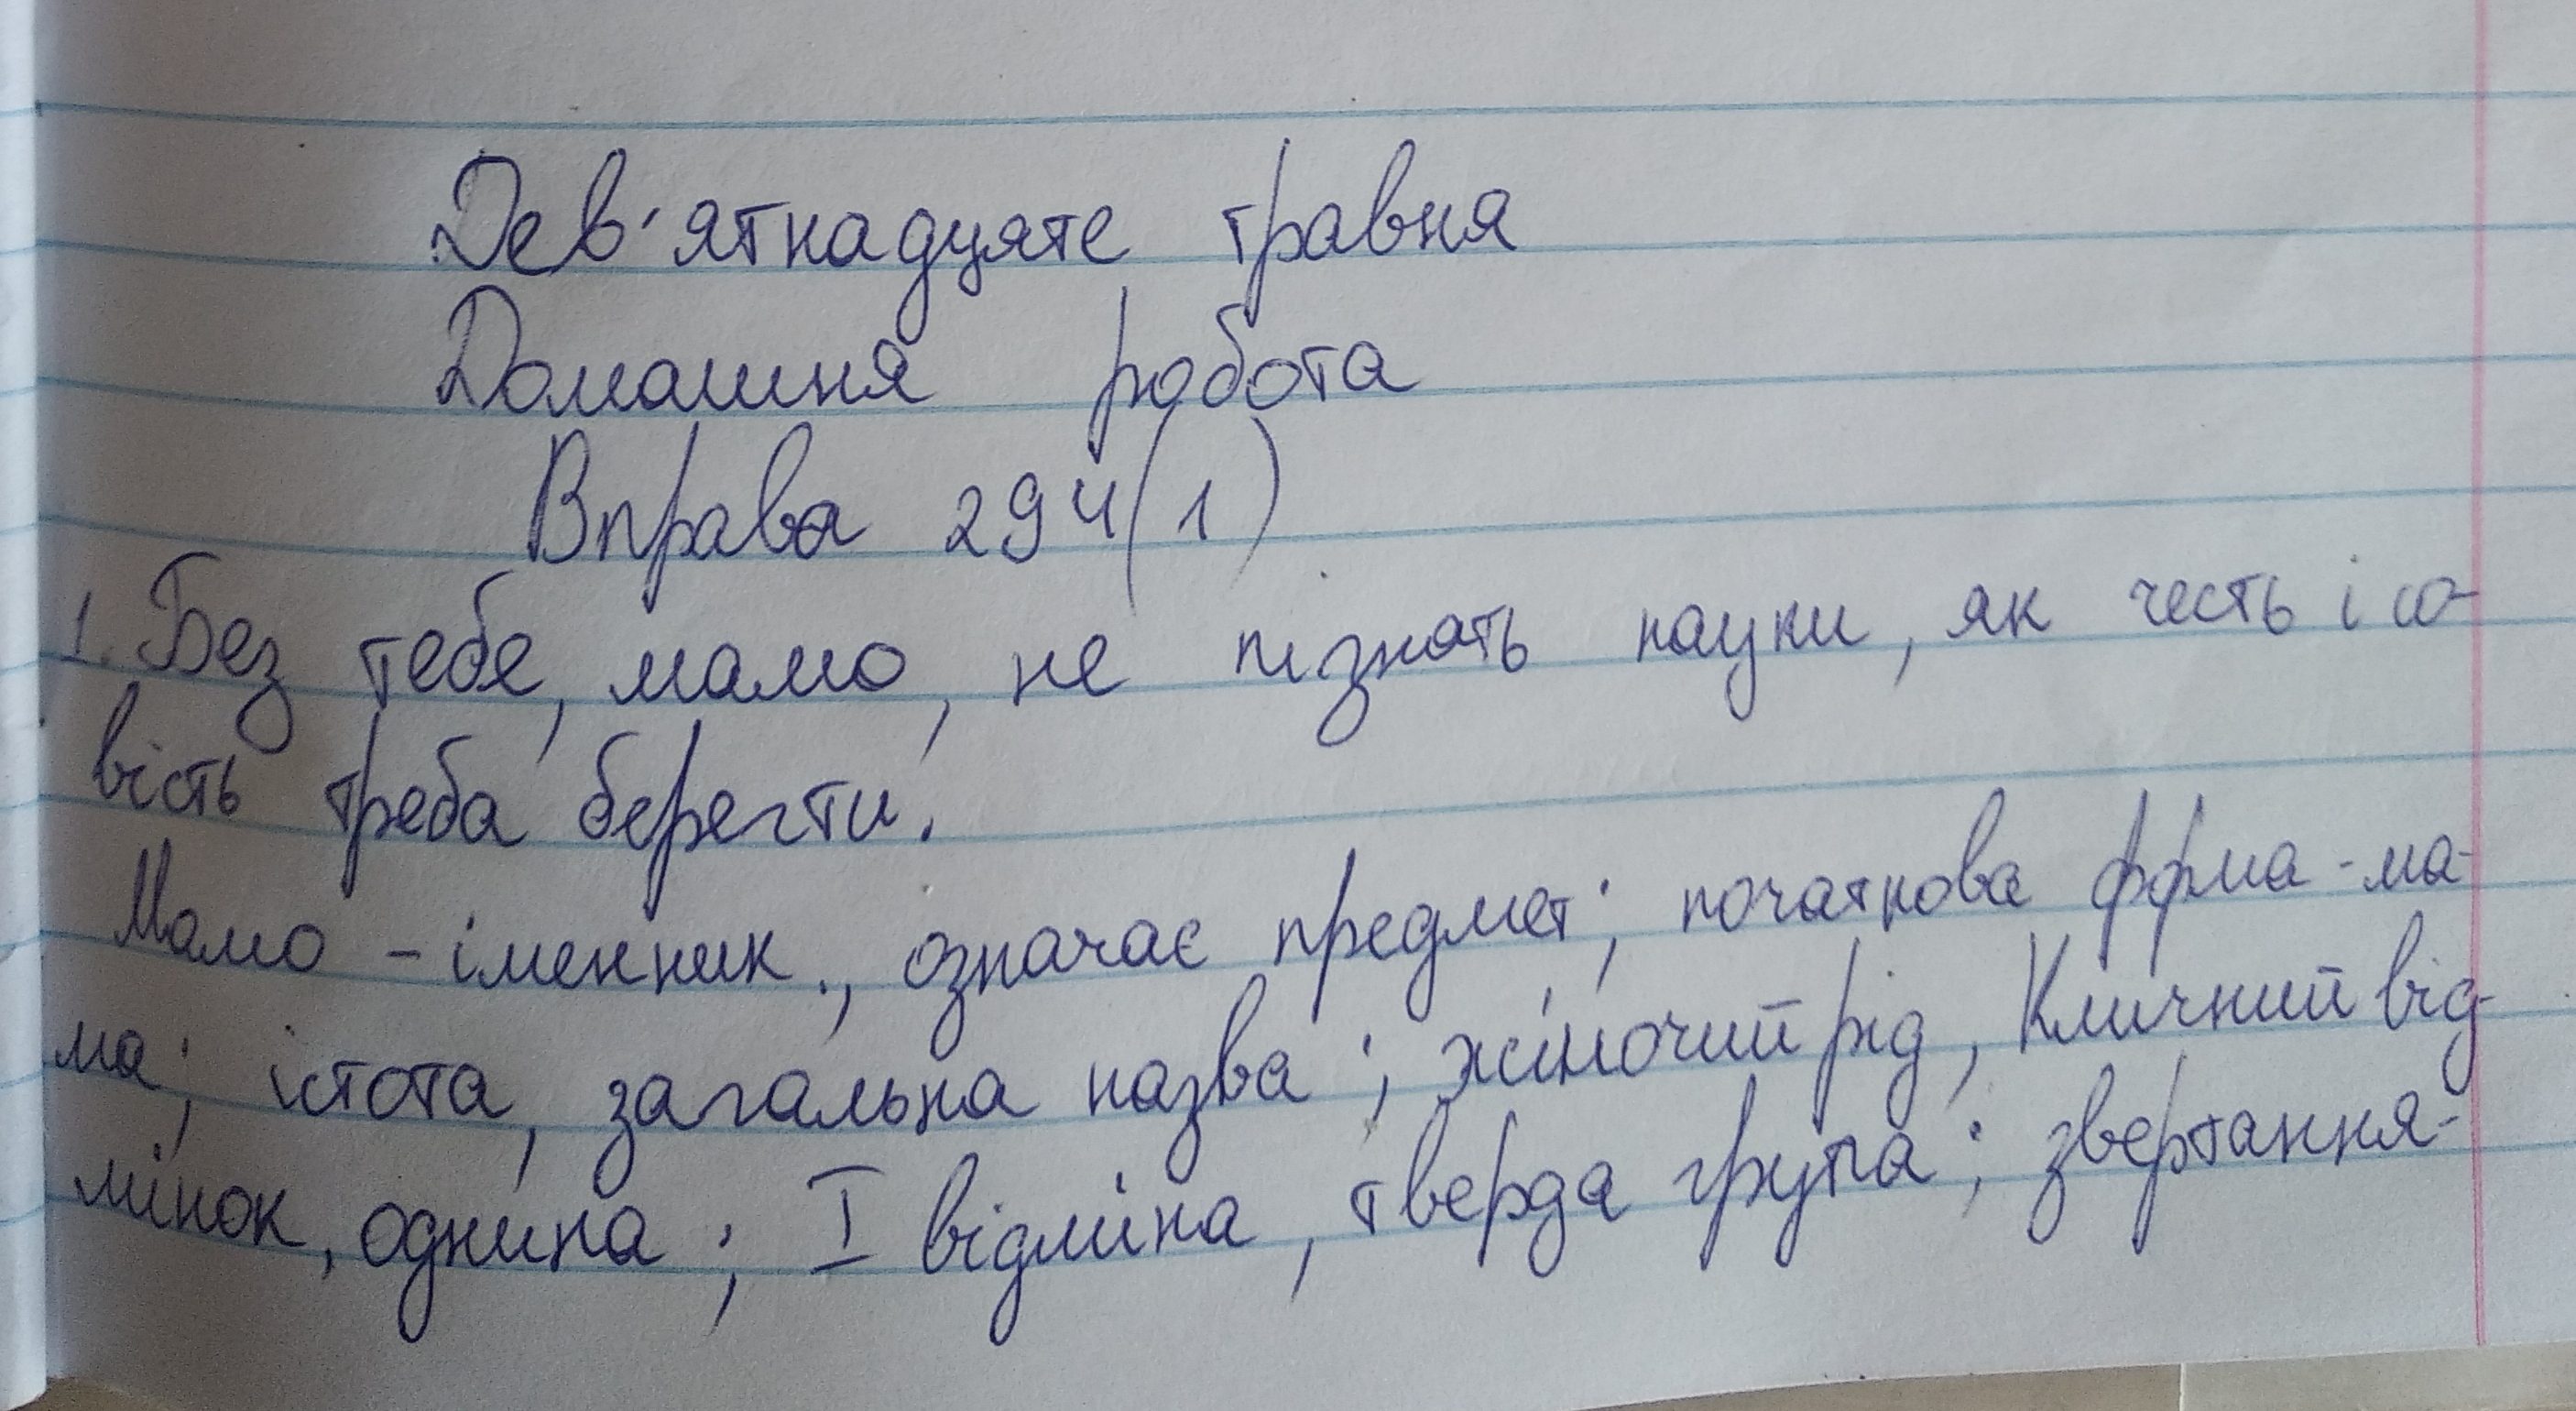 Дев'ятнадцяте травня
Домашня робота
Вправа 294(1)
1. Без тебе, мамо, не пізнать науки, як честь і со-
вість треба берегти.
Мамо - іменник., означає предмет; початкова форма - ма-
ма; істота, загальна назва; жіночий рід, Кличний від-
мінок, однина; I відміна, тверда група; звертання-